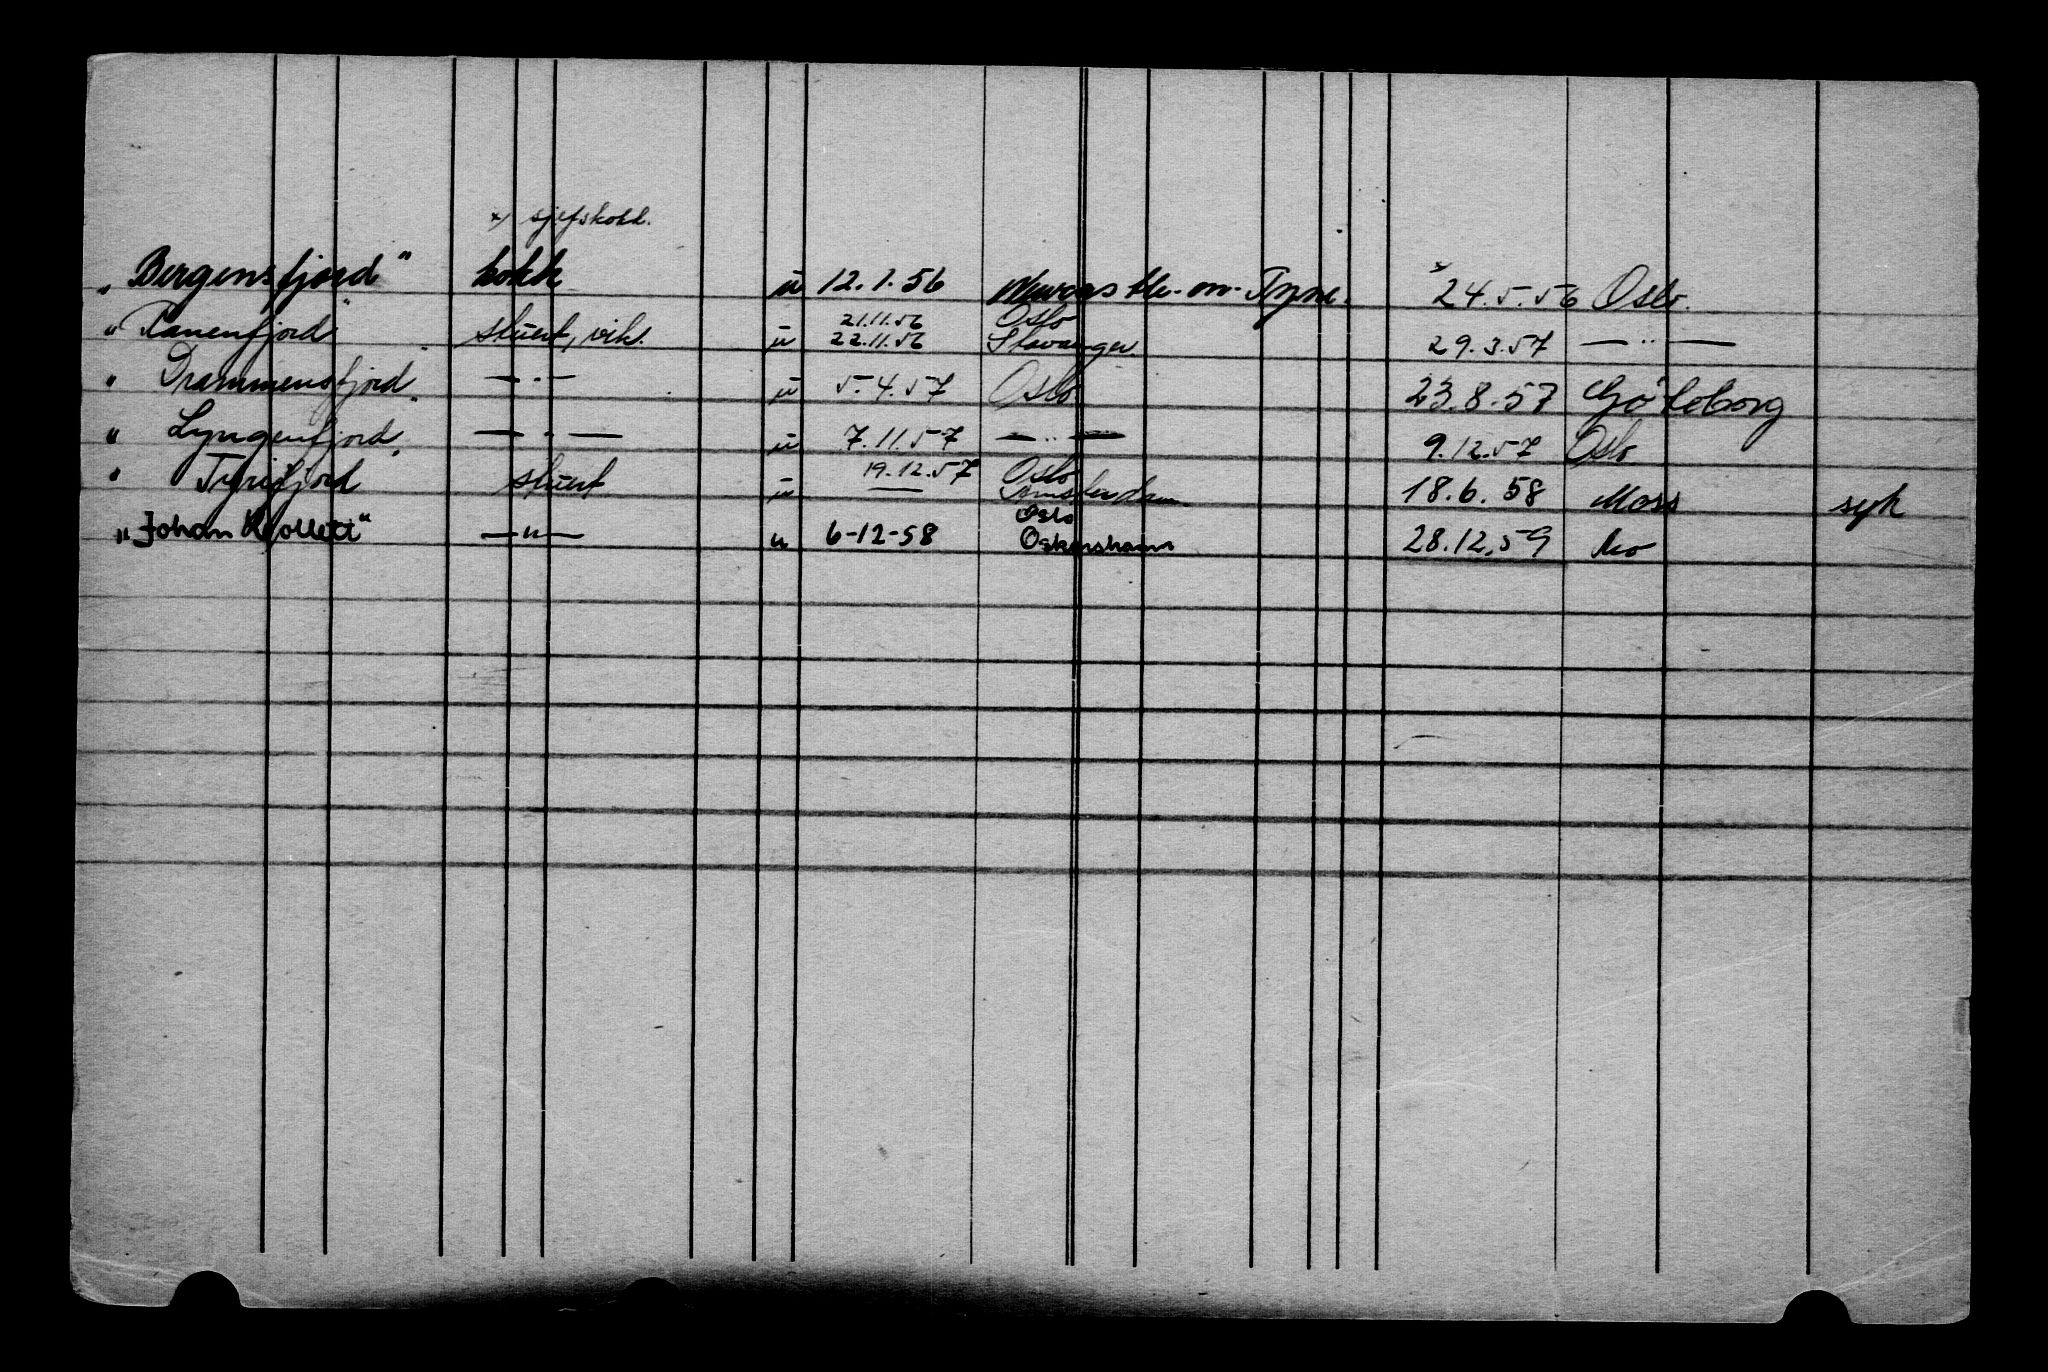 x) sjefskokk.
"Bergensfjord" kokk u 12.1.56 Newcastle-on-Tyne. x 24.5.56 Oslo.
21.11.56 Oslo
"Ranenfjord" stuert, vik. u 22.11.56 Stavanger 29.3.57 — " —
" Drammensfjord " — " — u 5.4.57 Oslo 23.8.57 Göteborg
" Lyngenfjord " — " — u 7.11.57 — " — 9.12.57 Oslo
19.12.57 Oslo
" Tyrifjord stuert u — Amsterdam 18.6.58 Moss syk
Oslo
"Johan Collett" — " — u 6-12-58 Oskarshamn 28.12.59 Mo